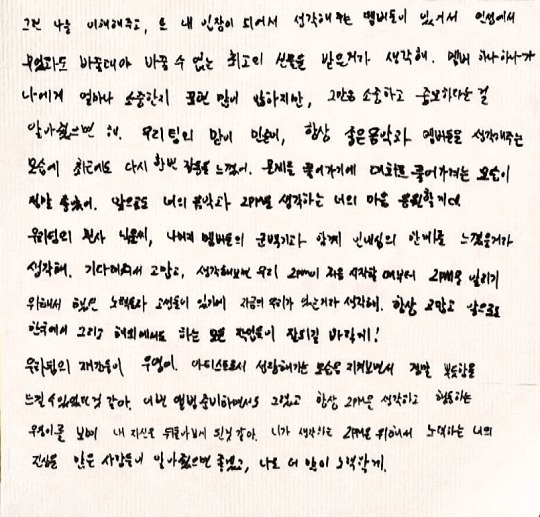 그런 나를 이해해주고, 또 내 입장이 되어서 생각해 주는 멤버들이 있어서 인생에서
무엇과도 바꿀래야 바꿀 수 없는 최고의 선물을 받은거라 생각해. 멤버 하나하나가
나에게 얼마나 소중한지 표현 많이 안하지만, 그만큼 소중하고 중요하다는 걸
알아줬으면 해. 우리팀의 맏이 민준이, 항상 좋은음악과 멤버들을 생각해주는
모습에 최근에도 다시 한번 감동을 느꼈어. 문제를 풀어가기에 대화로 풀어가려는 모습이
정말 좋았어. 앞으로도 너의 음악과 2PM을 생각하는 너의 마음 응원할게
우리팀의 천사 닉쿤씨, 나머지 멤버들의 군백기과 함께 인내심의 한계를 느꼈을거라
생각해. 기다려줘서 고맙고, 생각해보면 우리 2PM이 처음 시작할 때부터 2PM을 알리기
위해서 했던 노력들과 고생들이 있기에 지금의 우리가 있는거라 생각해. 항상 고맙고 앞으로도
한국에서 그리고 해외에서도 하는 모든 작업들이 잘되길 바랄게!
우리팀의 재간둥이 우영이. 아티스트로서 성장해가는 모습을 지켜보면서 정말 뿌듯함을
느낄 수 있었던것 같아. 이번 앨범준비하면서도 그랬고 항상 2PM을 생각하고 행동하는
우영이를 보며 내 자신을 뒤돌아보게 된것 같아. 니가 생각하는 2PM을 위해서 노력하는 너의
진심을 많은 사람들이 알아줬으면 좋겠고, 나도 더 많이 노력할게.